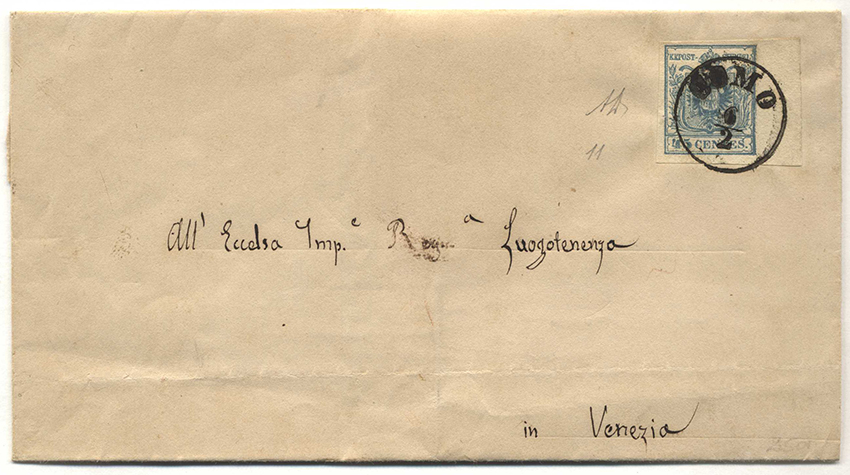 COMO
6/2
45 CENTES.
11
All' Eccelsa Imp.e Regia Luogotenenza
in Venezia